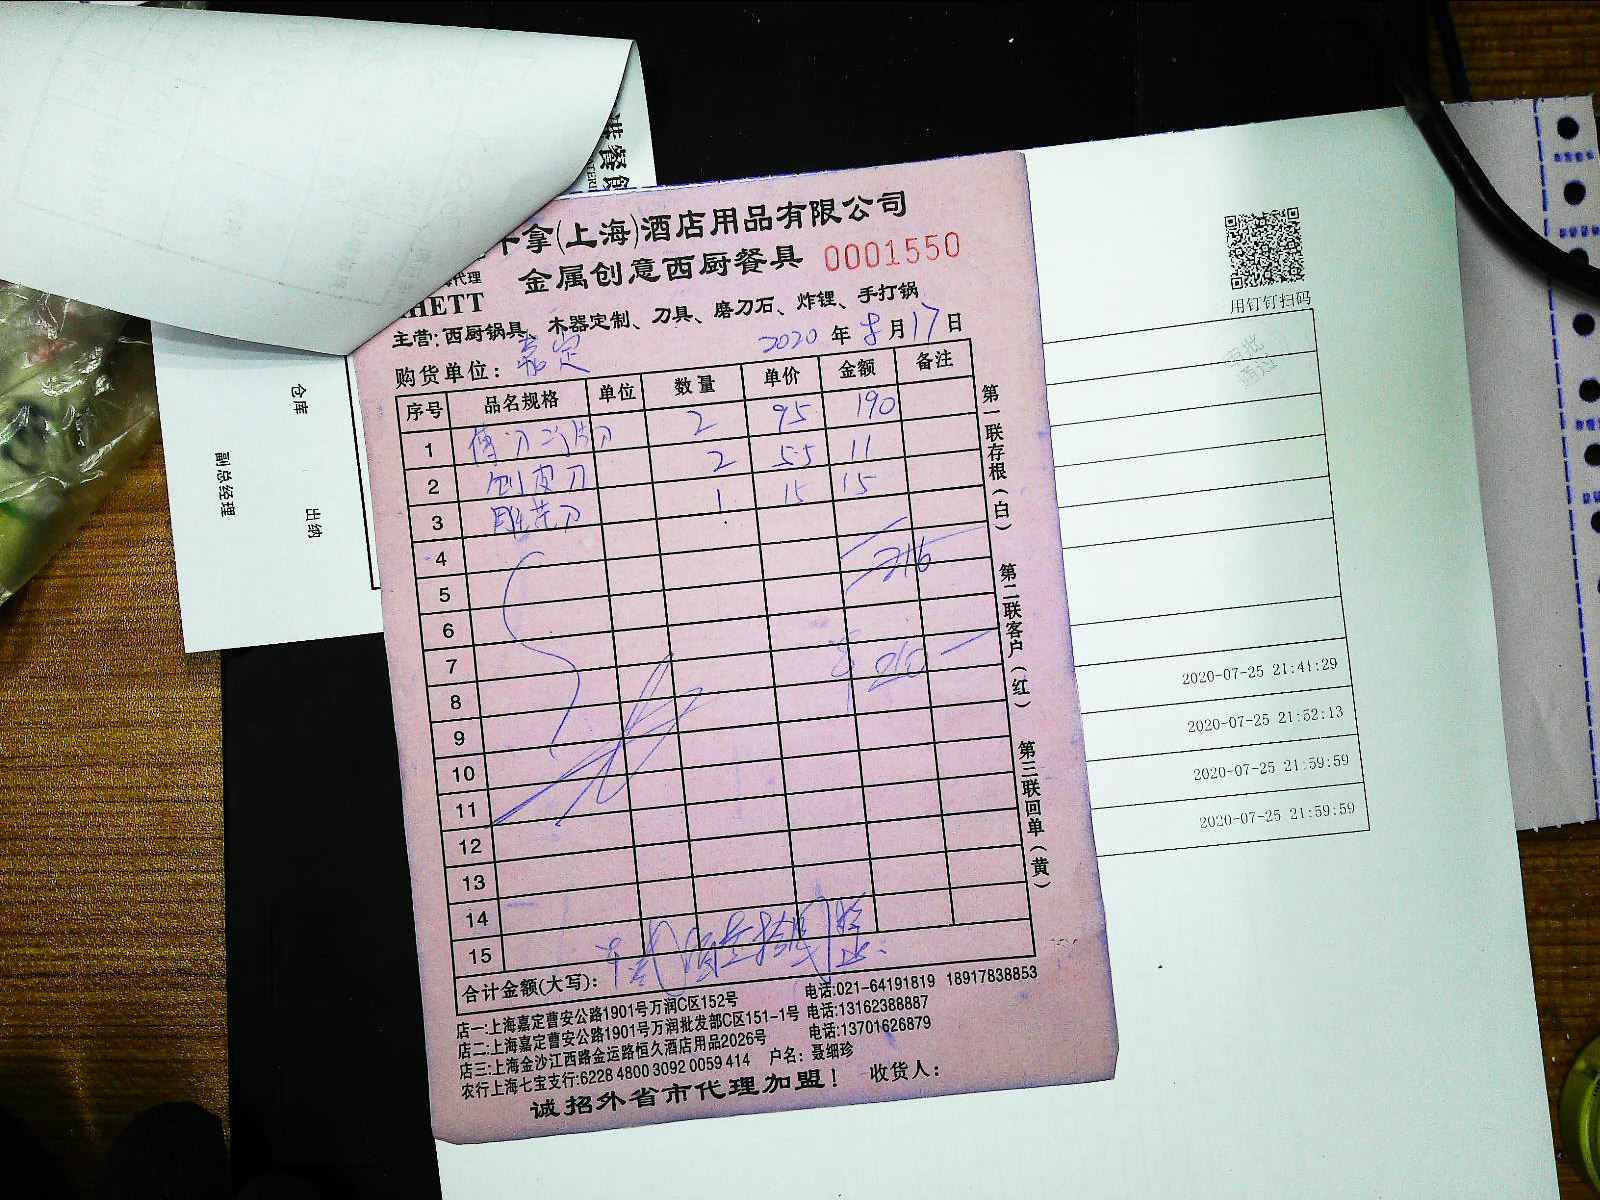 拿(上海)酒店用品有限公司
金属创意西厨餐具 0001550
代理
HETT
主营: 西厨锅具、木器定制、刀具、磨刀石、炸锂、手打锅
购货单位: 嘉定 2020 年 8 月 17 日
序号 品名规格 单位 数量 单价 金额 备注
1 片刀 2 95 190
2 刨皮刀 2 5.5 11
3 雕花刀 1 15 15
4
5 216
6
7
8 ¥ 210
9
10
11
12
13
14
15
合计金额(大写):
店一:上海嘉定曹安公路1901号万润C区152号 电话:021-64191819 18917838853
店二:上海嘉定曹安公路1901号万润批发部C区151-1号 电话:13162388887
店三:上海金沙江西路金运路恒久酒店用品2026号 电话:13701626879
农行上海七宝支行:6228 4800 3092 0059 414 户名: 聂细珍
诚招外省市代理加盟! 收货人:
第一联存根(白)
第二联客户(红)
第三联回单(黄)
仓库
副总经理
出纳
用钉钉扫码
审批
通过
2020-07-25 21:41:29
2020-07-25 21:52:13
2020-07-25 21:59:59
2020-07-25 21:59:59